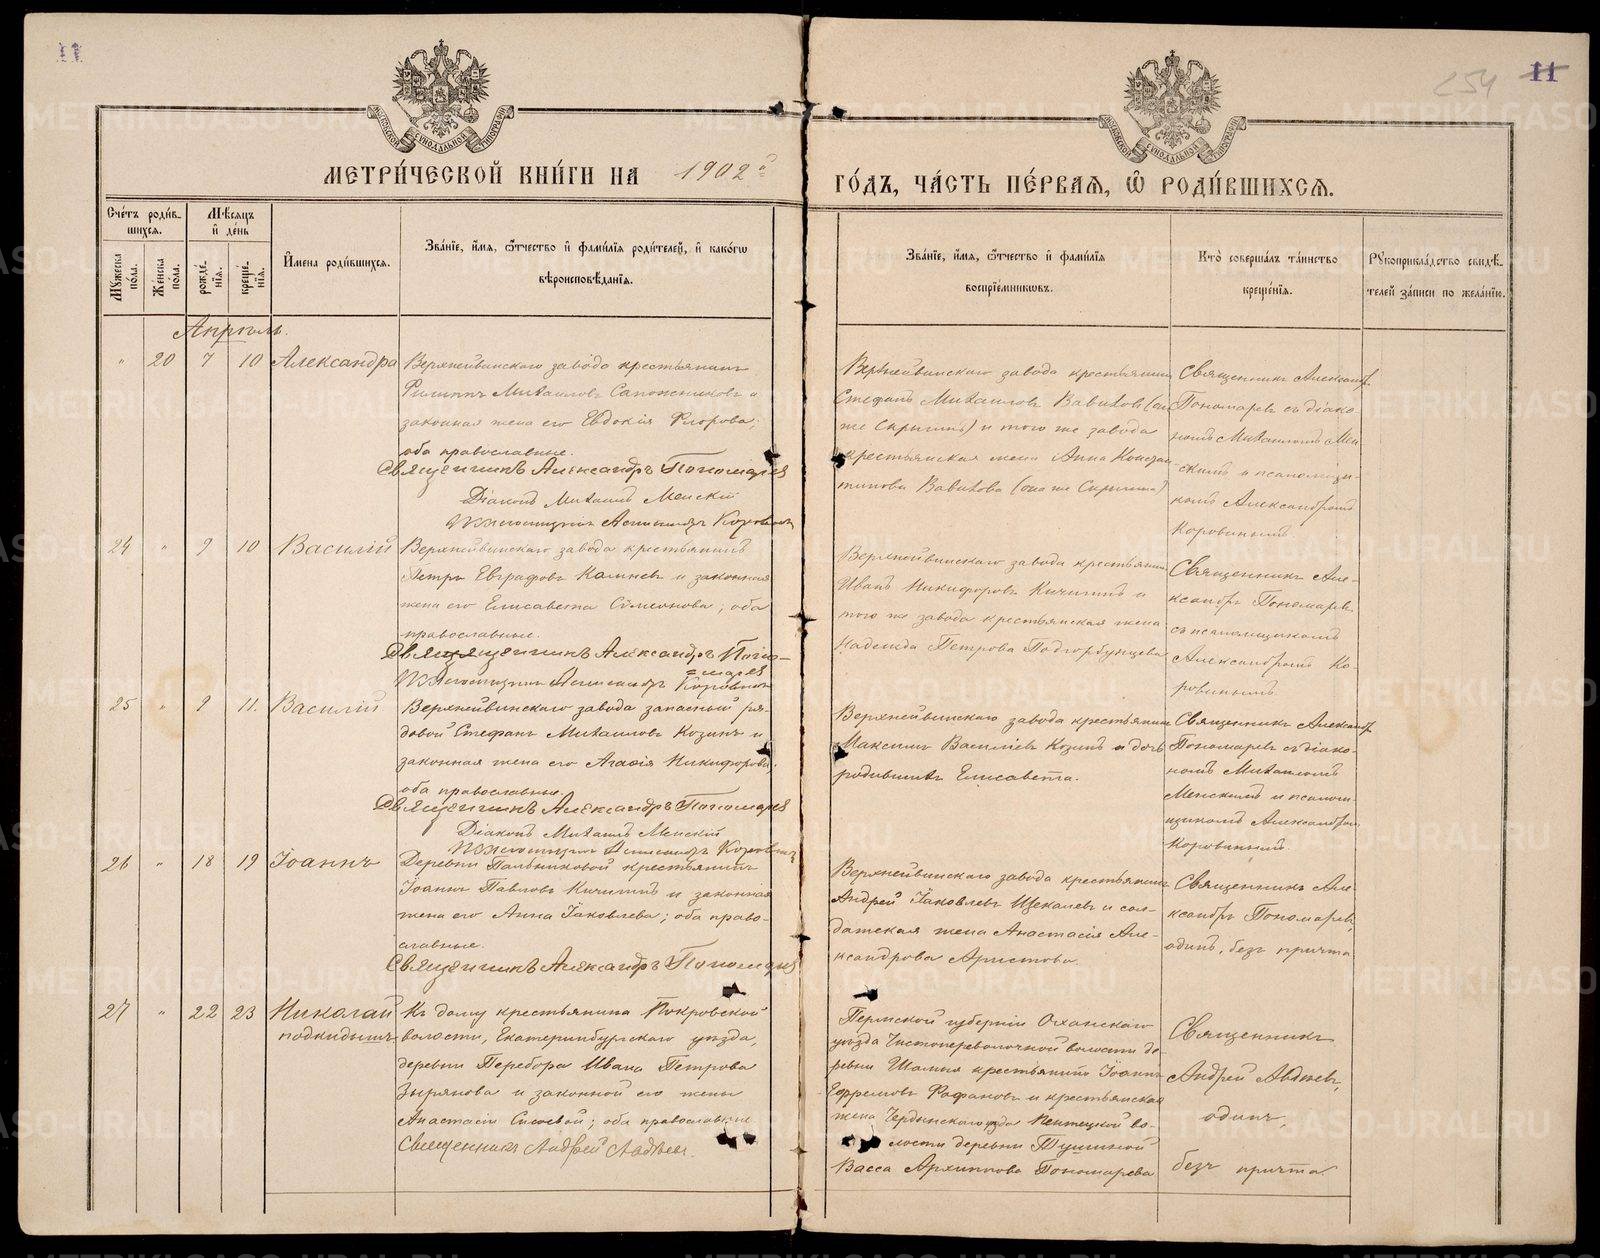 11
254
11
МОСКОВСКОЙ СѴНОДАЛЬНОЙ ТИПОГРАФІИ
МОСКОВСКОЙ СѴНОДАЛЬНОЙ ТИПОГРАФІИ
МЕТРИ́ЧЕСКОЙ КНИ́ГИ НА 1902й
ГО́ДЪ, ЧА́СТЬ ПЕ́РВАѦ, Ѡ҆ РОДИ́ВШИХСѦ.
Сче́тъ роди́в-
шихся.
Мꙋжеска по́ла.
Же́нска по́ла.
Мѣсяцъ
и҆ де́нь
рожде́-
нїя.
креще́-
нїя.
И҆мена роди́вшихся.
Зва́нїе, и҆́мя, ѻ҆́тчество и҆ фами́лїя роди́телей, и҆ како́гѡ
вѣроисповѣ́данїя.
Зва́нїе, и҆́мя, ѻ҆́тчество и҆ фами́лїя
воспрїе́мниковъ.
Кто̀ соверша́лъ та́инство
креще́нїя.
Рꙋкоприкла́дство свидѣ́-
телей за́писи по жела́нїю.
Апрѣль.
" 20 7 10 Александра
Верхнейвинскаго завода крестьянинъ
Филиппъ Михаиловъ Сапожниковъ и
законная жена его Евдокія Флорова;
оба православные.
Священникъ Александръ Пономаревъ
Діаконъ Михаилъ Менскій
Псаломщикъ Александръ Коровинъ
Верхнейвинскаго завода крестьянинъ
Стефанъ Михаиловъ Вавиловъ (он
же Скрыпинъ) и того же завода
крестьянская жена Анна Констан-
тинова Вавилова (она же Скрыпина)
Священникъ Александръ
Пономаревъ съ діако-
номъ Михаиломъ Мен-
скимъ и псаломщи-
комъ Александромъ
Коровинымъ.
24 " 9 10 Василій
Верхнейвинскаго завода крестьянинъ
Петръ Евграфовъ Калинъ и законная
жена его Елисавета Сѵмеонова; оба
православные.
Священникъ Александръ Поно-
маревъ
Псаломщикъ Александръ Коровинъ
Верхнейвинскаго завода крестьянинъ
Иванъ Никифоровъ Кичигинъ и
того же завода крестьянская жена
Надежда Петрова Подгорбунцева
Священникъ Але-
ксандръ Пономаревъ
съ псаломщикомъ
Александромъ Ко-
ровинымъ.
25 " 9 11. Василій
Верхнейвинскаго завода запасный ря-
довой Стефанъ Михаиловъ Козинъ и
законная жена его Агафія Никифорова,
оба православные.
Священникъ Александръ Пономаревъ
Діаконъ Михаилъ Менскій
Псаломщикъ Александръ Коровинъ
Верхнейвинскаго завода крестьянинъ
Максимъ Василіевъ Козинъ и дочь
родившаго Елисавета.
Священникъ Александръ
Пономаревъ съ діако-
номъ Михаиломъ
Менскимъ и псалом-
щикомъ Александром
Коровинымъ.
26 " 18 19 Іоаннъ
Деревни Пальниковой крестьянинъ
Іоаннъ Павловъ Кичигинъ и законная
жена его Анна Іаковлева; оба право-
славные.
Священникъ Александръ Пономаревъ
Верхнейвинскаго завода крестьянинъ
Андрей Іаковлевъ Щекалевъ и сол-
датская жена Анастасія Але-
ксандрова Аристова.
Священникъ Але-
ксандръ Пономаревъ,
одинъ, безъ причта
27 " 22 23 Николай
подкидышъ
Къ дому крестьянина Покровской
волости, Екатеринбургскаго уѣзда,
деревни Перебора Ивана Петрова
Зырянова и законной его жены
Анастасіи Сысоевой; оба православные
Священникъ Андрей Авдѣевъ.
Пермской губерніи Оханскаго
уѣзда Чистопереволочной волости де-
ревни Шалиа крестьянинъ Іоаннъ
Ефремовъ Рафановъ и крестьянская
жена Чердынскаго уѣзда Пянтецкой во-
лости деревни Тушиной
Васса Архиппова Пономарева
Священникъ
Андрей Авдѣевъ,
одинъ,
безъ причта
METRIKI.GASO-URAL.RU